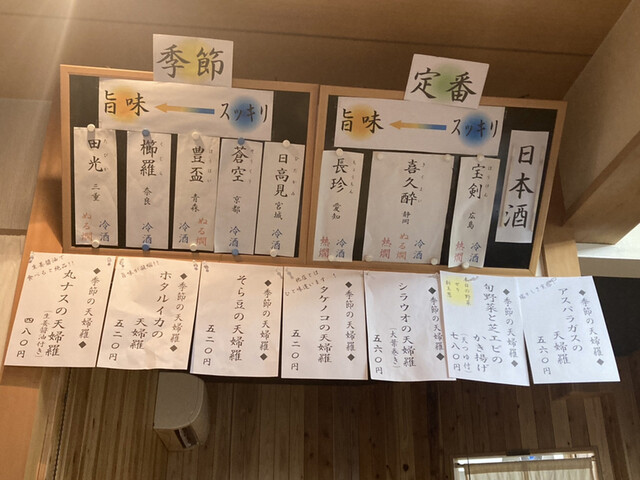 季節
旨味 スッキリ
日高見
宮城
冷酒
蒼空
京都
冷酒
豊盃
青森
ぬる燗
冷酒
櫛羅
奈良
冷酒
田光
三重
ぬる燗
定番
旨味 スッキリ
日本酒
宝剣
広島
冷酒
喜久酔
静岡
ぬる燗
熱燗
長珍
愛知
冷酒
熱燗
◆季節の天婦羅◆
アスパラガスの
天婦羅
五六〇円
◆季節の天婦羅◆
旬野菜と芝エビの
かき揚げ
(天つゆ付)
七八〇円
◆季節の天婦羅◆
シラウオの天婦羅
(大葉巻き)
五六〇円
◆季節の天婦羅◆
タケノコの
天婦羅
五二〇円
◆季節の天婦羅◆
そら豆の天婦羅
五二〇円
◆季節の天婦羅◆
ホタルイカの
天婦羅
五二〇円
◆季節の天婦羅◆
丸ナスの天婦羅
(生姜醤油付き)
四八〇円